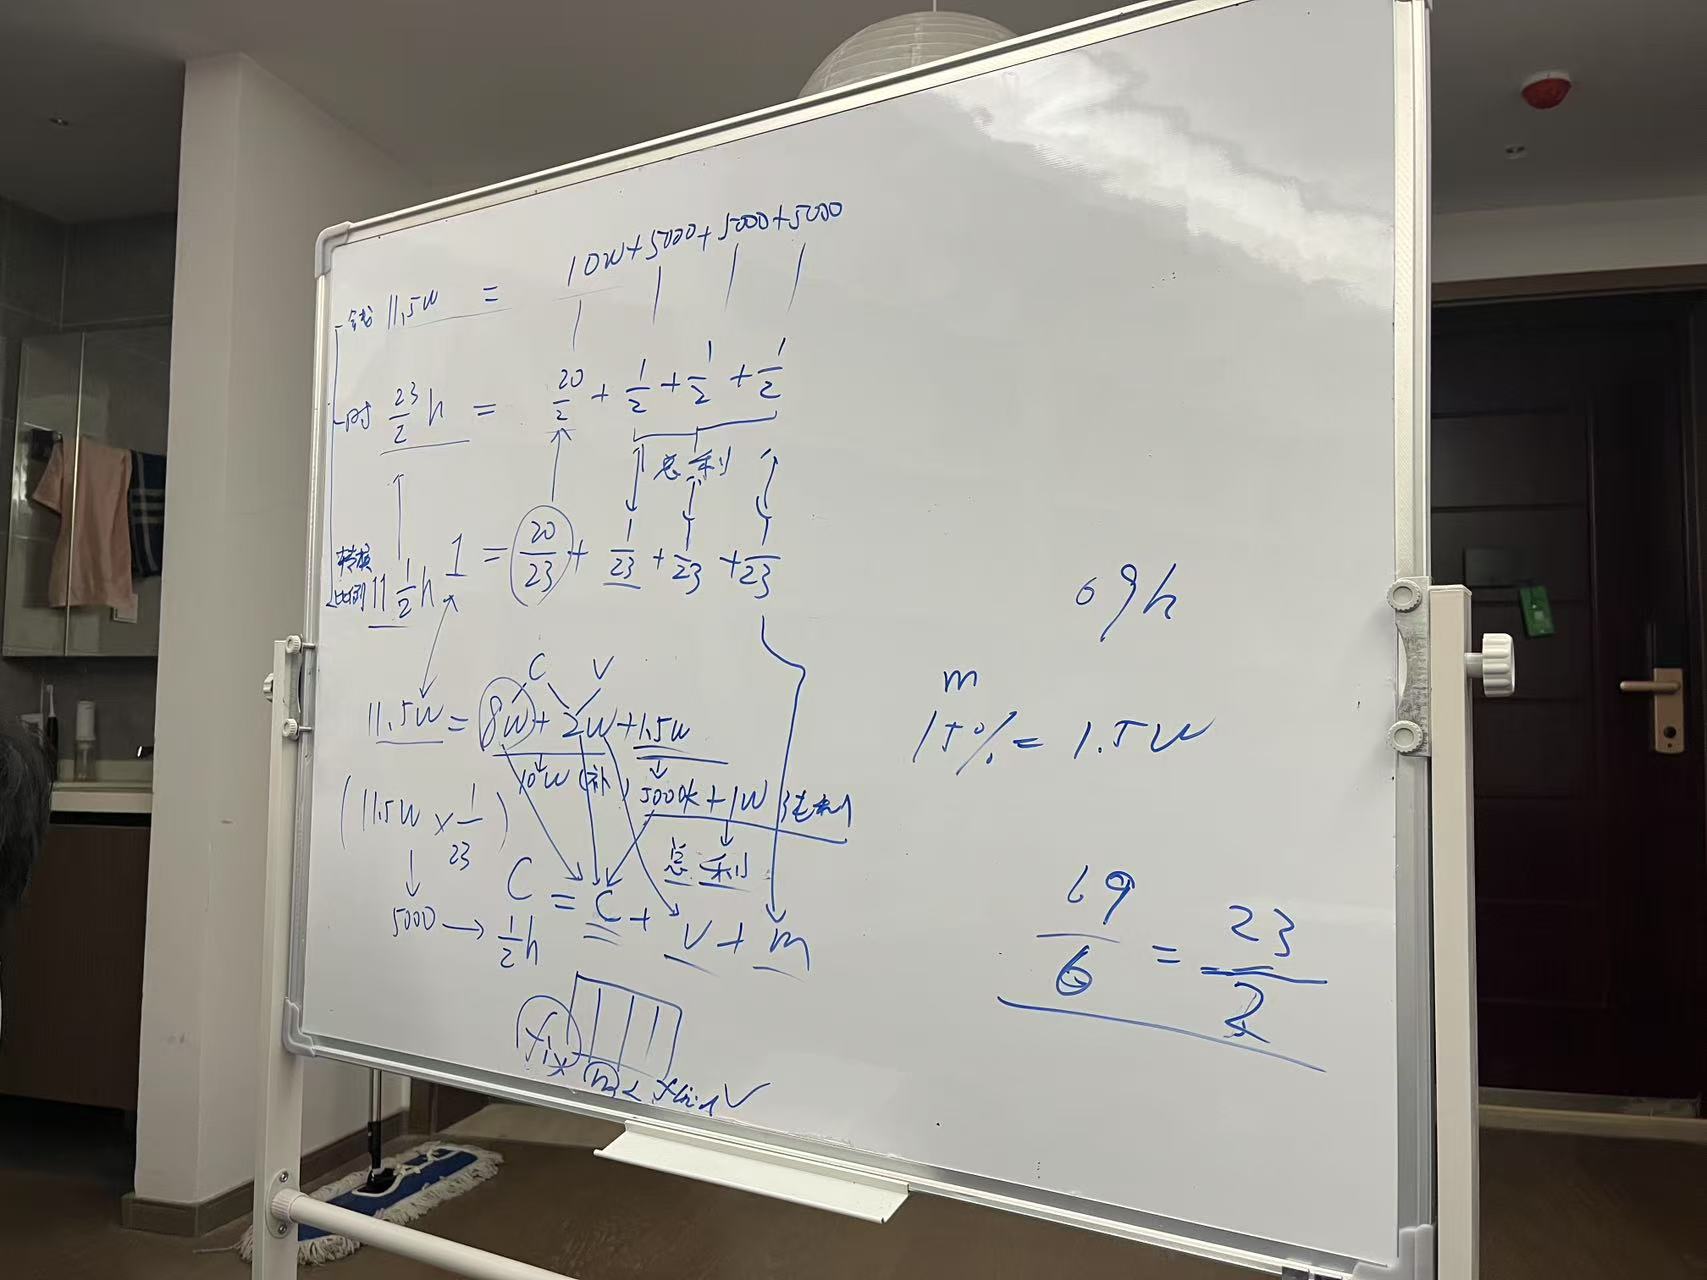 10w+5000+5000+5000
钱 11.5w =
时 23/2 h = 20/2 + 1/2 + 1/2 + 1/2
总利
转换
比例 11 1/2 h 1 = 20/23 + 1/23 + 1/23 + 1/23
C V
11.5w = 8w + 2w + 1.5w
10w
5000 + 1w
(11.5w × 1/23)
总利
5000 → 1/2 h
C = C + V + m
fix
69h
m
15% = 1.5w
69/6 = 23/2